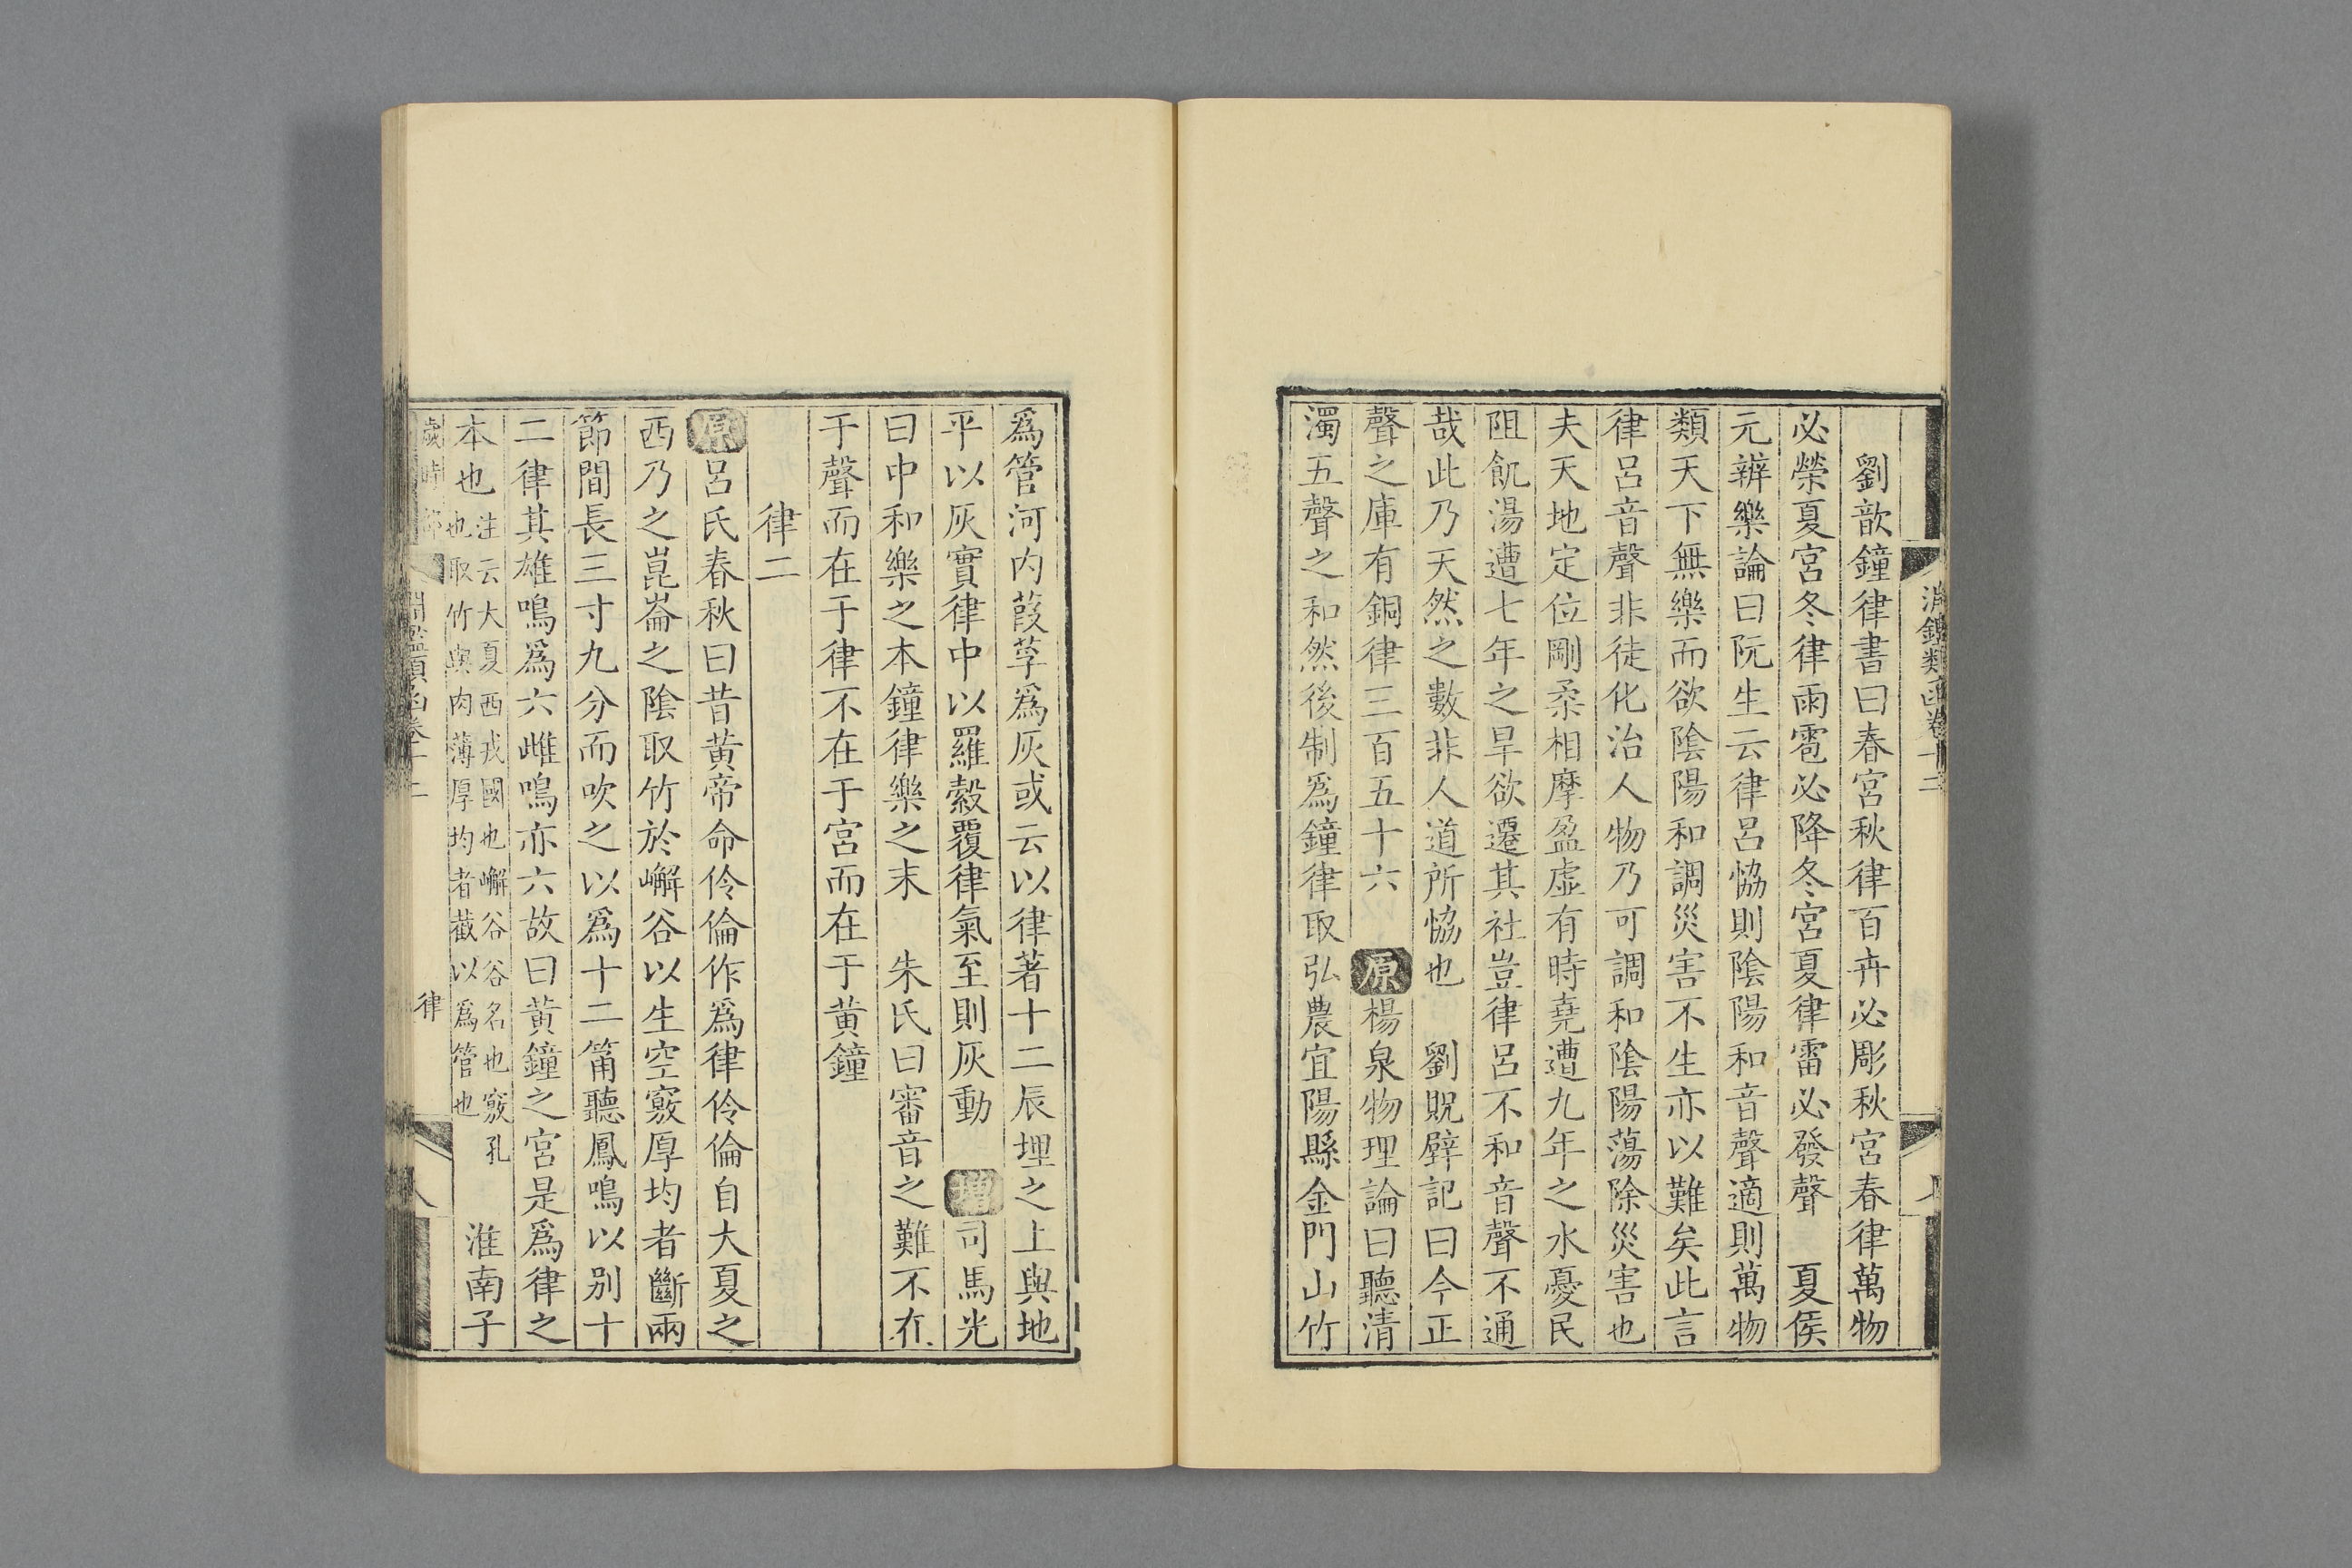 淵鑑類函卷十二
劉歆鐘律書曰春宮秋律百卉必彫秋宮春律萬物
必榮夏宮冬律雨雹必降冬宮夏律雷必發聲 夏侯
元辨樂論曰阮生云律呂恊則陰陽和音聲適則萬物
類天下無樂而欲陰陽和調災害不生亦以難矣此言
律呂音聲非徒化治人物乃可調和陰陽蕩除災害也
夫天地定位剛柔相摩盈虛有時堯遭九年之水憂民
阻飢湯遭七年之旱欲遷其社豈律呂不和音聲不通
哉此乃天然之數非人道所恊也 劉貺壁記曰今正
聲之庫有銅律三百五十六 原楊泉物理論曰聽清
濁五聲之和然後制爲鐘律取弘農宜陽縣金門山竹
爲管河内葭莩爲灰或云以律著十二辰埋之上與地
平以灰實律中以羅縠覆律氣至則灰動 增司馬光
曰中和樂之本鐘律樂之末 朱氏曰審音之難不在
于聲而在于律不在于宮而在于黃鐘
律二
原呂氏春秋曰昔黃帝命伶倫作爲律伶倫自大夏之
西乃之崑崙之陰取竹於嶰谷以生空竅厚均者斷兩
節間長三寸九分而吹之以爲十二筩聽鳳鳴以别十
二律其雄鳴爲六雌鳴亦六故曰黃鐘之宮是爲律之
本也注云大夏西戎國也嶰谷谷名也竅孔
也取竹與肉薄厚均者截以爲管也 淮南子
歲時部 淵鑑類函卷十二 律 八